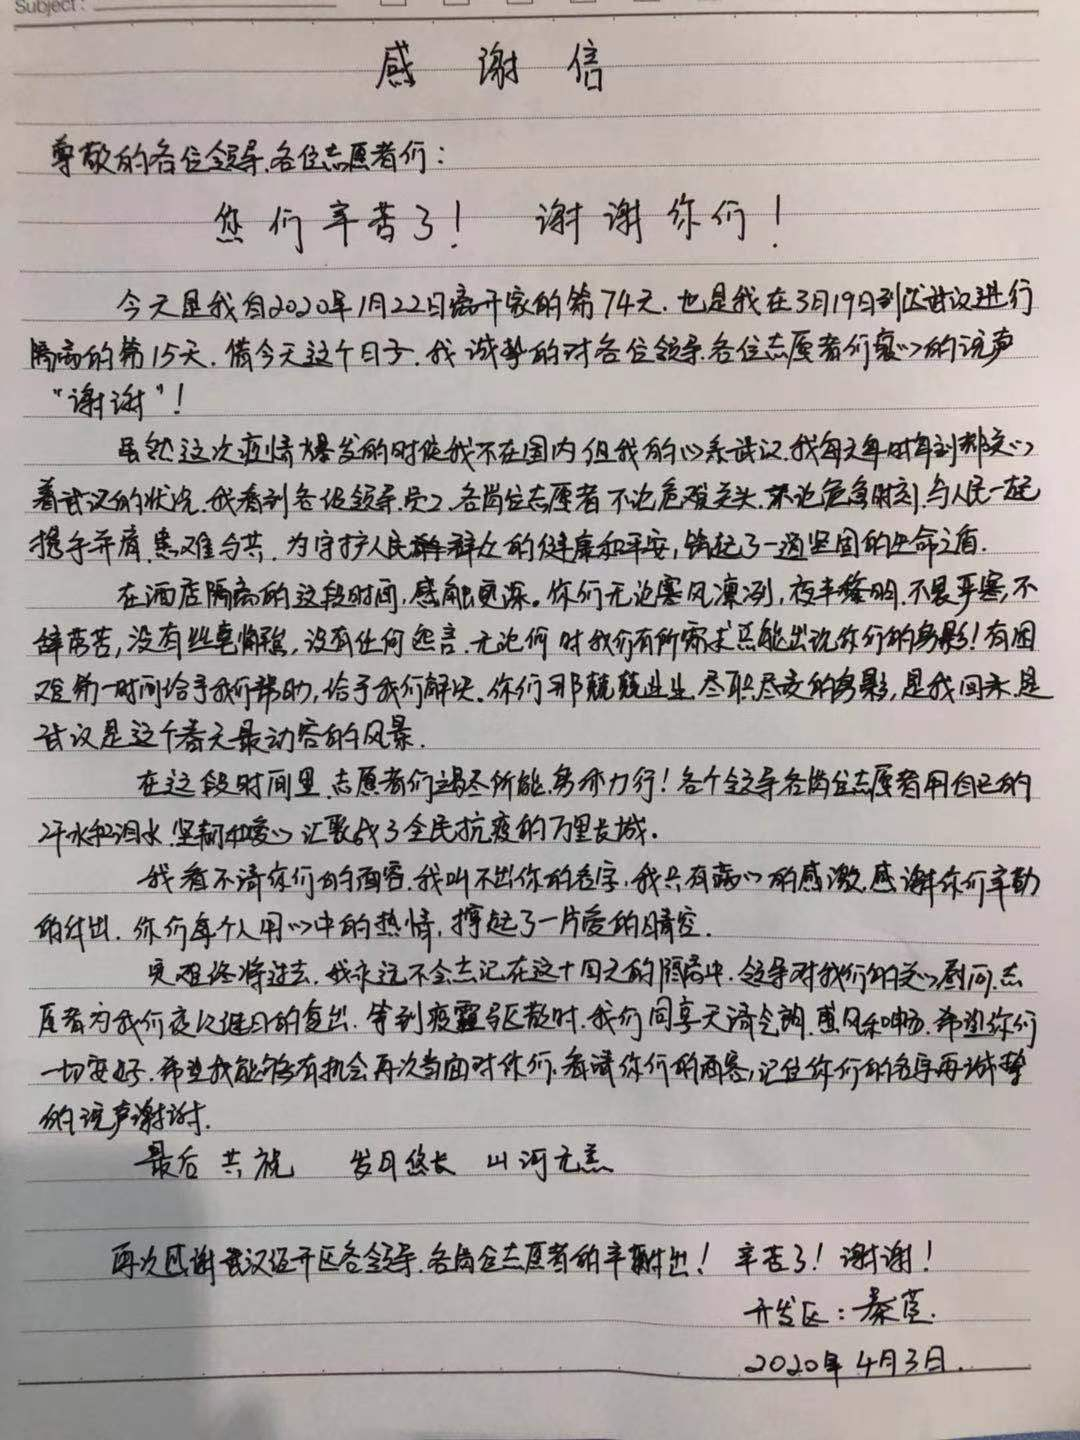 Subject:
感谢信
尊敬的各位领导、各位志愿者们:
您们辛苦了! 谢谢你们!
今天是我自2020年1月22日离开家的第74天.也是我在3月19日到达武汉进行
隔离的第15天.借今天这个日子.我诚挚的对各位领导.各位志愿者们衷心的说声
"谢谢"!
虽然这次疫情爆发的时候我不在国内但我的心系武汉.我每天每时每刻都关心
着武汉的状况.我看到各级领导.员工.各岗位志愿者不论危难关头.不论危急时刻.与人民一起
携手并肩.患难与共.为守护人民群众的健康和平安,铸起了一道坚固的生命之盾.
在酒店隔离的这段时间.感触更深。你们无论寒风凛冽,夜半黎明.不畏严寒,不
辞劳苦,没有丝毫懈怠,没有任何怨言.无论何时我们有所需求总能出现你们的身影!有困
难第一时间给予我们帮助,给予我们解决.你们那兢兢业业.尽职尽责的身影,是我回来.是
武汉是这个春天最动容的风景.
在这段时间里.志愿者们竭尽所能.身体力行!各个领导各岗位志愿者用自己的
汗水和泪水.坚韧和爱心汇聚成了全民抗疫的万里长城.
我看不清你们的面容.我叫不出你的名字.我只有满心的感激.感谢你们辛勤
的付出.你们每个人用心中的热情,撑起了一片爱的晴空.
灾难终将过去.我永远不会忘记在这十四天的隔离中.领导对我们的关心慰问.志
愿者为我们夜以继日的付出.等到疫霾驱散时.我们同享天清气朗.惠风和畅.希望你们
一切安好.希望我能够有机会再次当面对你们.看清你们的面容,记住你们的名字再诚挚
的说声谢谢.
最后 共祝 岁月悠长 山河无恙
再次感谢武汉经开区各领导.各岗位志愿者的辛勤付出! 辛苦了! 谢谢!
开发区:秦萱.
2020年4月3日.